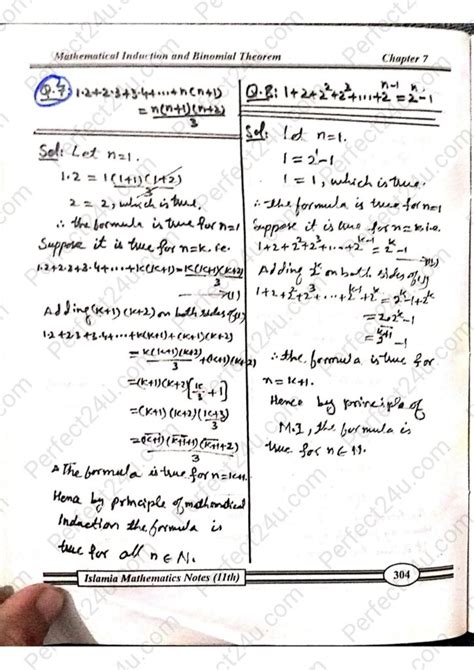 Mathematical Induction and Binomial Theorem
Chapter 7
Q.7: 1·2+2·3+3·4+...+n(n+1)
= n(n+1)(n+2)/3
Sol: Let n=1.
1·2 = 1(1+1)(1+2)/3
2 = 2, which is true.
∴ the formula is true for n=1
Suppose it is true for n=k. i.e.
1·2+2·3+3·4+...+k(k+1)=k(k+1)(k+2)/3
→(1)
Adding (k+1)(k+2) on both sides of (1)
1·2+2·3+3·4+...+k(k+1)+(k+1)(k+2)
= k(k+1)(k+2)/3 + (k+1)(k+2)
=(k+1)(k+2)[k/3+1]
=(k+1)(k+2)(k+3)/3
=(k+1)(k+1+1)(k+1+2)/3
∴ The formula is true for n=k+1.
Hence by principle of mathematical
Induction the formula is
true for all n∈N.
Q.8: 1+2+2²+2³+...+2ⁿ⁻¹=2ⁿ-1
Sol: Let n=1.
1=2¹-1
1=1, which is true.
∴ The formula is true for n=1
Suppose it is true for n=k i.e.
1+2+2²+2³+...+2ᵏ⁻¹=2ᵏ-1
→(1)
Adding 2ᵏ on both sides of (1)
1+2+2²+2³+...+2ᵏ⁻¹+2ᵏ=2ᵏ-1+2ᵏ
=2·2ᵏ-1
=2ᵏ⁺¹-1
∴ the formula is true for
n=k+1.
Hence by principle of
M.I, the formula is
true for n∈N.
Islamia Mathematics Notes (11th)
304
Perfect24u.com